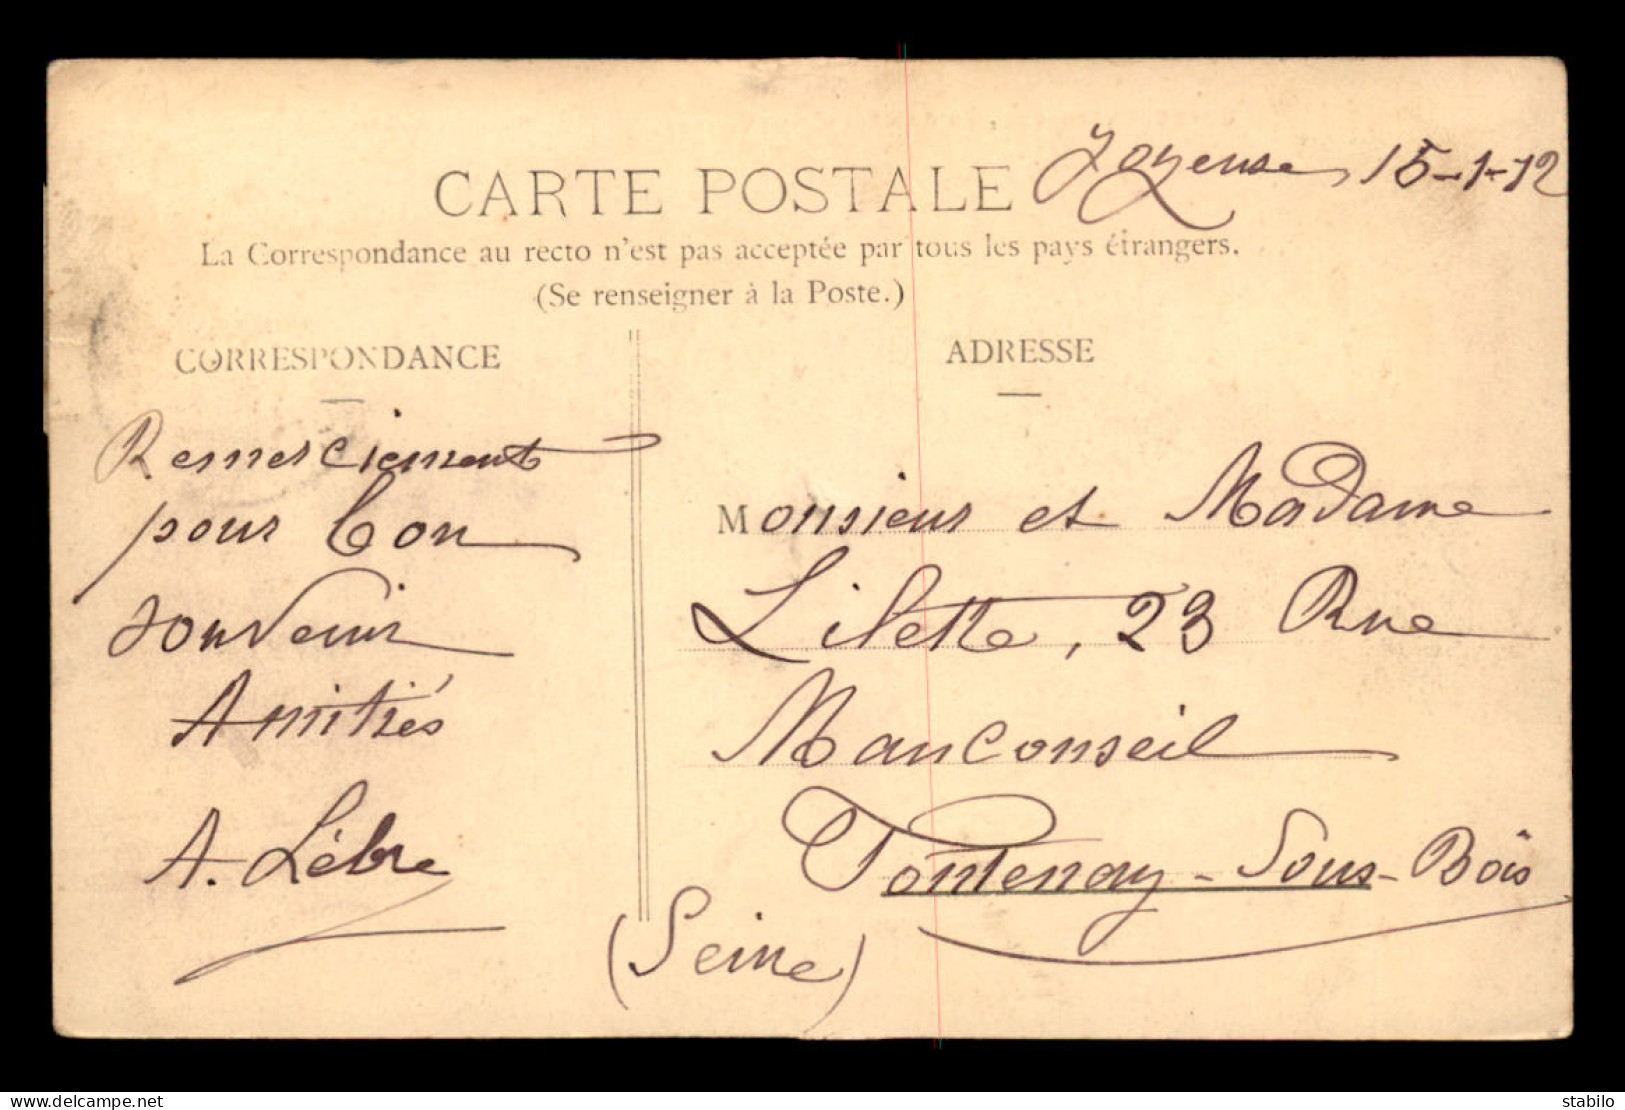 Joyeuse, 15-1-12
CARTE POSTALE
La Correspondance au recto n'est pas acceptée par tous les pays étrangers.
(Se renseigner à la Poste.)
CORRESPONDANCE
Remerciement
pour bon
souvenir
Amitiés
A. Lèbre
ADRESSE
Monsieur et Madame
Lilette, 23 Rue
Mauconseil
Fontenay-Sous-Bois
(Seine)
www.delcampe.net
stabilo